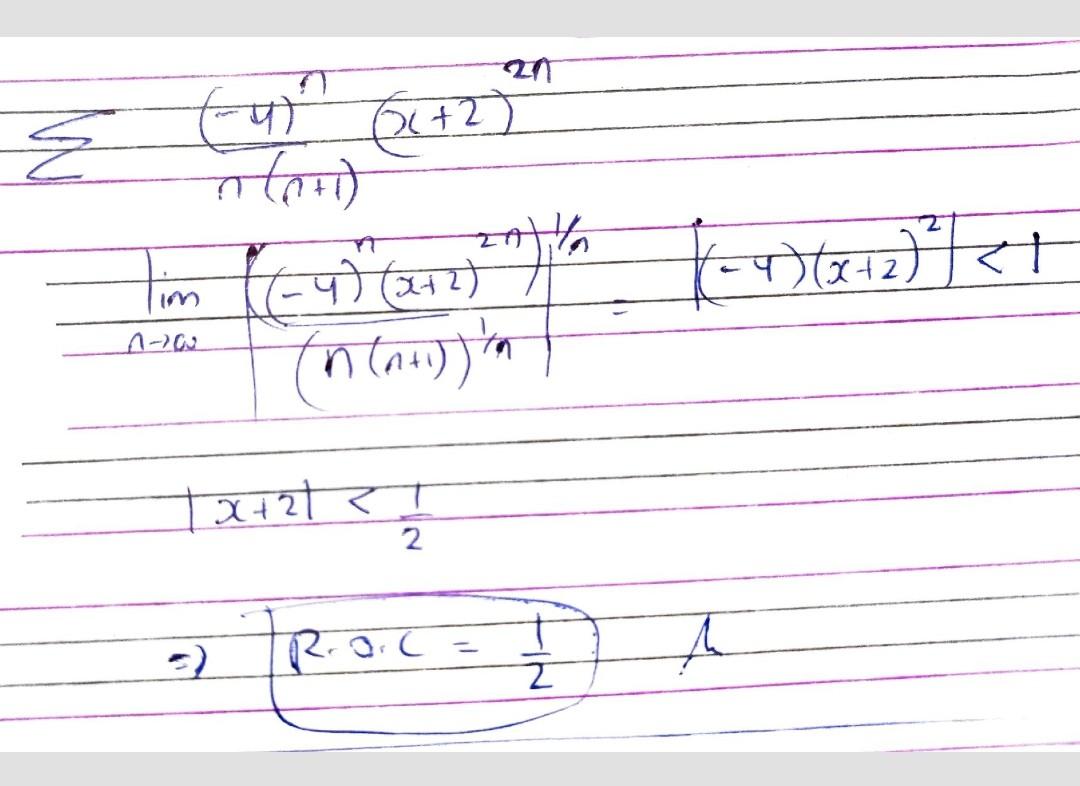 ∑ (-4)^n / n(n+1) (x+2)^2n
lim n→∞ |((-4)^n (x+2)^2n)^1/n / (n(n+1))^1/n| = |(-4)(x+2)^2| < 1
|x+2| < 1/2
=> R.O.C = 1/2